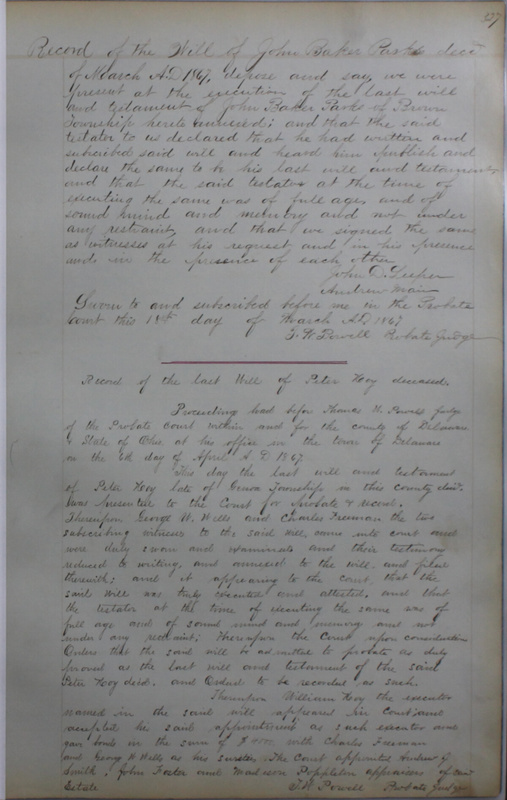 327
Record of the Will of John Baker Parks decd
of March A.D 1867, depose and say, we were
present at the execution of the last will
and testament of John Baker Parks of Brown
Township hereto annexed; and that the said
testator to us declared that he had written and
subscribed said will and heard him publish and
declare the same to be his last will and testament
and that the said testator at the time of
executing the same was of full age, and of
sound mind and memory and not under
any restraint, and that we signed the same
as witnesses at his request and in his presence
and in the presence of each other
John D. Leeper
Andrew Main
Sworn to and subscribed before me in the Probate
Court this 18th day of March A.D 1867
T. W. Powell Probate Judge
Record of the last Will of Peter Hoy deceased.
Proceeding had before Thomas W. Powell Judge
of the Probate Court within and for the county of Delaware
& State of Ohio, at his office in the town of Delaware
on the 6d day of April A.D. 1867.
This day the last will and testament
of Peter Hoy late of Genoa Township in this county decd.
was presented to the Court for Probate & record.
Thereupon George W. Wells and Charles Freeman the two
subscribing witnesses to the said Will, came into court and
were duly sworn and examined and their testimony
reduced to writing, and annexed to the will, and filed
therewith; and it appearing to the court, that the
said Will was truly executed and attested, and that
the testator at the time of executing the same was of
full age and of sound mind and memory and not
under any restraint; Thereupon the Court upon consideration
Orders that the said will be admitted to probate as duly
proved as the last will and testament of the said
Peter Hoy decd. and Ordered to be recorded as such.
Thereupon William Hoy the executor
named in the said will appeared in Court and
accepted his said appointment as such executor and
gave bonds in the sum of $ with Charles Freeman
and George W Wells as his sureties. The Court appointed Andrew J
Smith, John Foster and Madison Poppleton appraisers of said
Estate
T. W. Powell Probate Judge